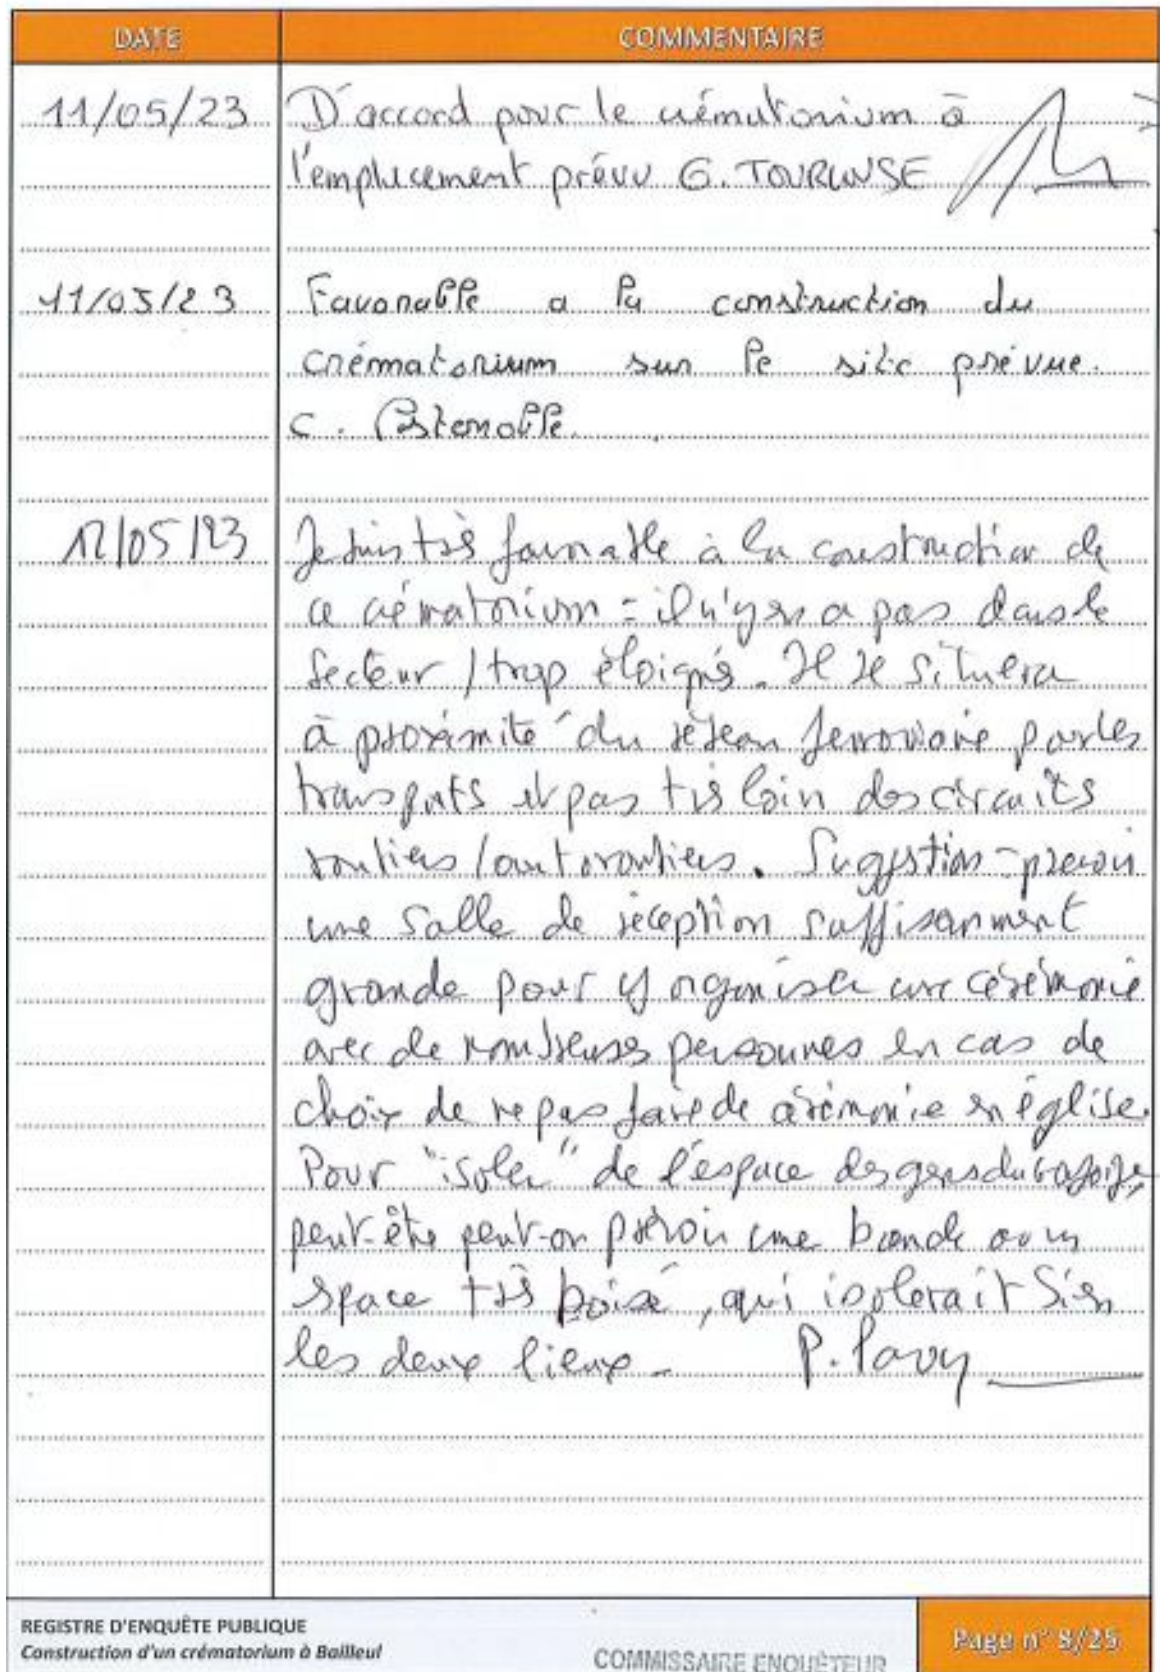 DATE COMMENTAIRE
11/05/23 D'accord pour le crématorium à
l'emplacement prévu G. TOURLOUSE
11/05/23 Favorable a la construction du
crématorium sur le site prévue.
C.
12/05/23 Je suis très favorable à la construction de
ce crématorium = il n'y en a pas dans le
secteur / trop éloigné. Il se situera
à proximité du réseau ferroviaire par les
transports et pas très loin des circuits
routiers / autoroutiers. Suggestion - prévoir
une salle de réception suffisamment
grande pour y organiser une cérémonie
avec de nombreuses personnes en cas de
choix de ne pas faire de cérémonie en église.
Pour "isoler" de l'espace des gens du voyage,
peut-être peut-on prévoir une bande ou un
espace très boisé, qui isolerait bien
les deux lieux - P. Pavy
REGISTRE D'ENQUÊTE PUBLIQUE
Construction d'un crématorium à Bailleul
COMMISSAIRE ENQUÊTEUR
Page n° 8/25